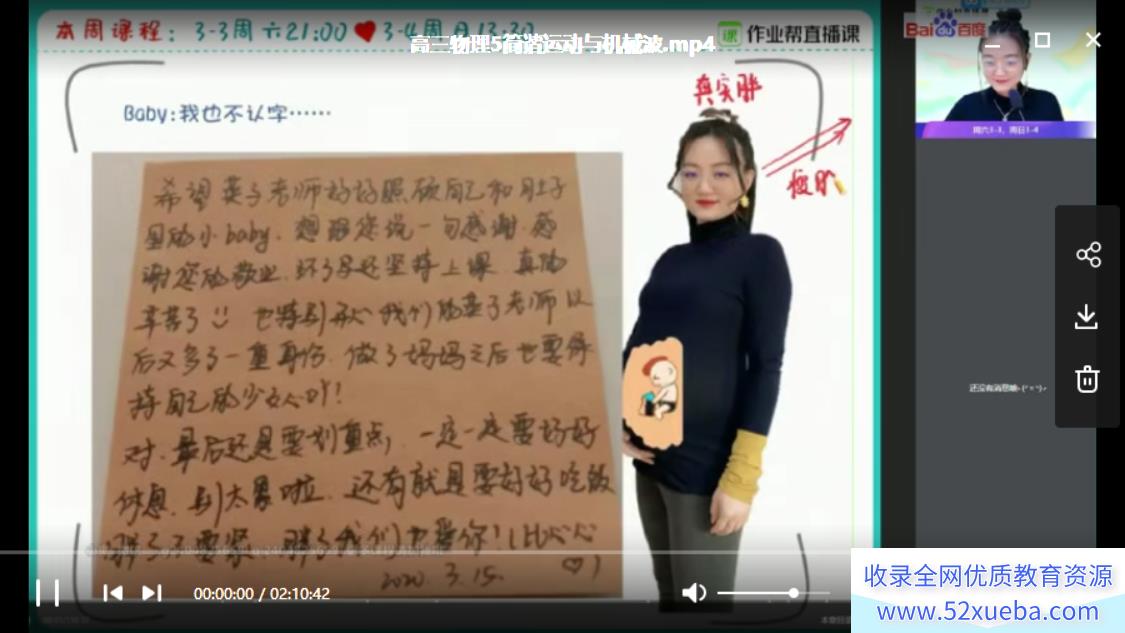 本周课程：3-3周六21:00 ❤ 3-4周日13:30
高三物理5简谐运动与机械波.mp4
课 作业帮直播课
Bai du 百度
Baby:我也不认字……
真实胖
瘦的
希望英子老师好好照顾自己和肚子
里的小baby. 想跟您说一句感谢. 感
谢您的敬业. 怀了孕还坚持上课. 真的
辛苦了 也特别开心我们的英子老师以
后又多了一重身份. 做了妈妈之后也要保
持自己的少女心吖!
对. 最后还是要划重点, 一定一定要好好
休息. 别太累啦. 还有就是要好好吃饭
胖了不要紧. 胖了我们也爱你! (比心心
♡)
2020. 3. 15.
周六3-3，周日3-4
还没有消息哦~
00:00:00 / 02:10:42
收录全网优质教育资源
www.52xueba.com